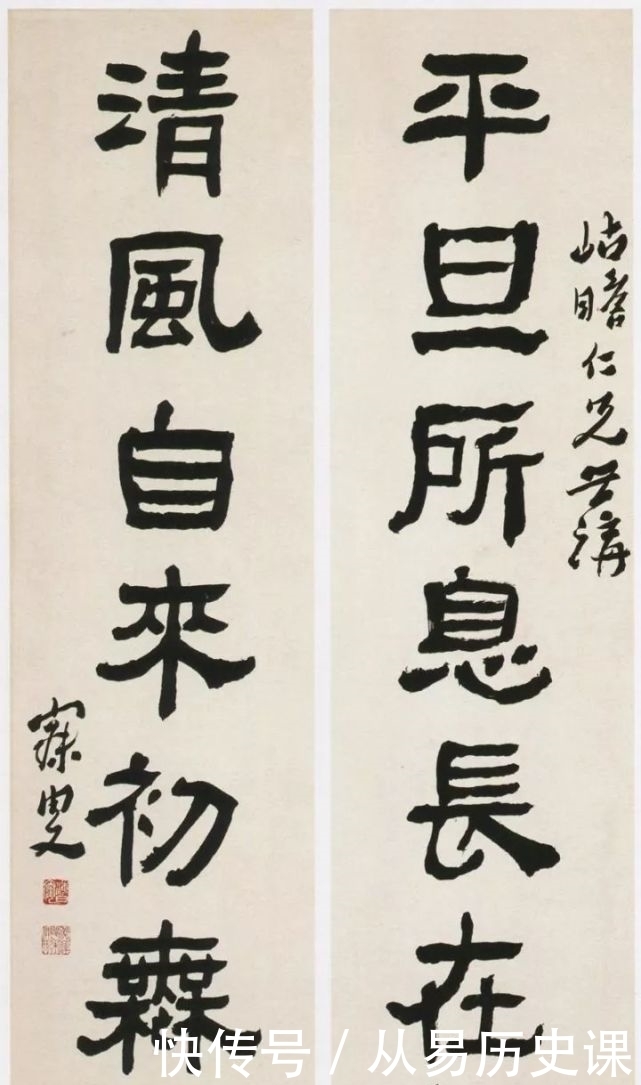 岵瞻仁兄世講
平旦所息長在
清風自來初無
寐叟
快传号 / 从易历史课